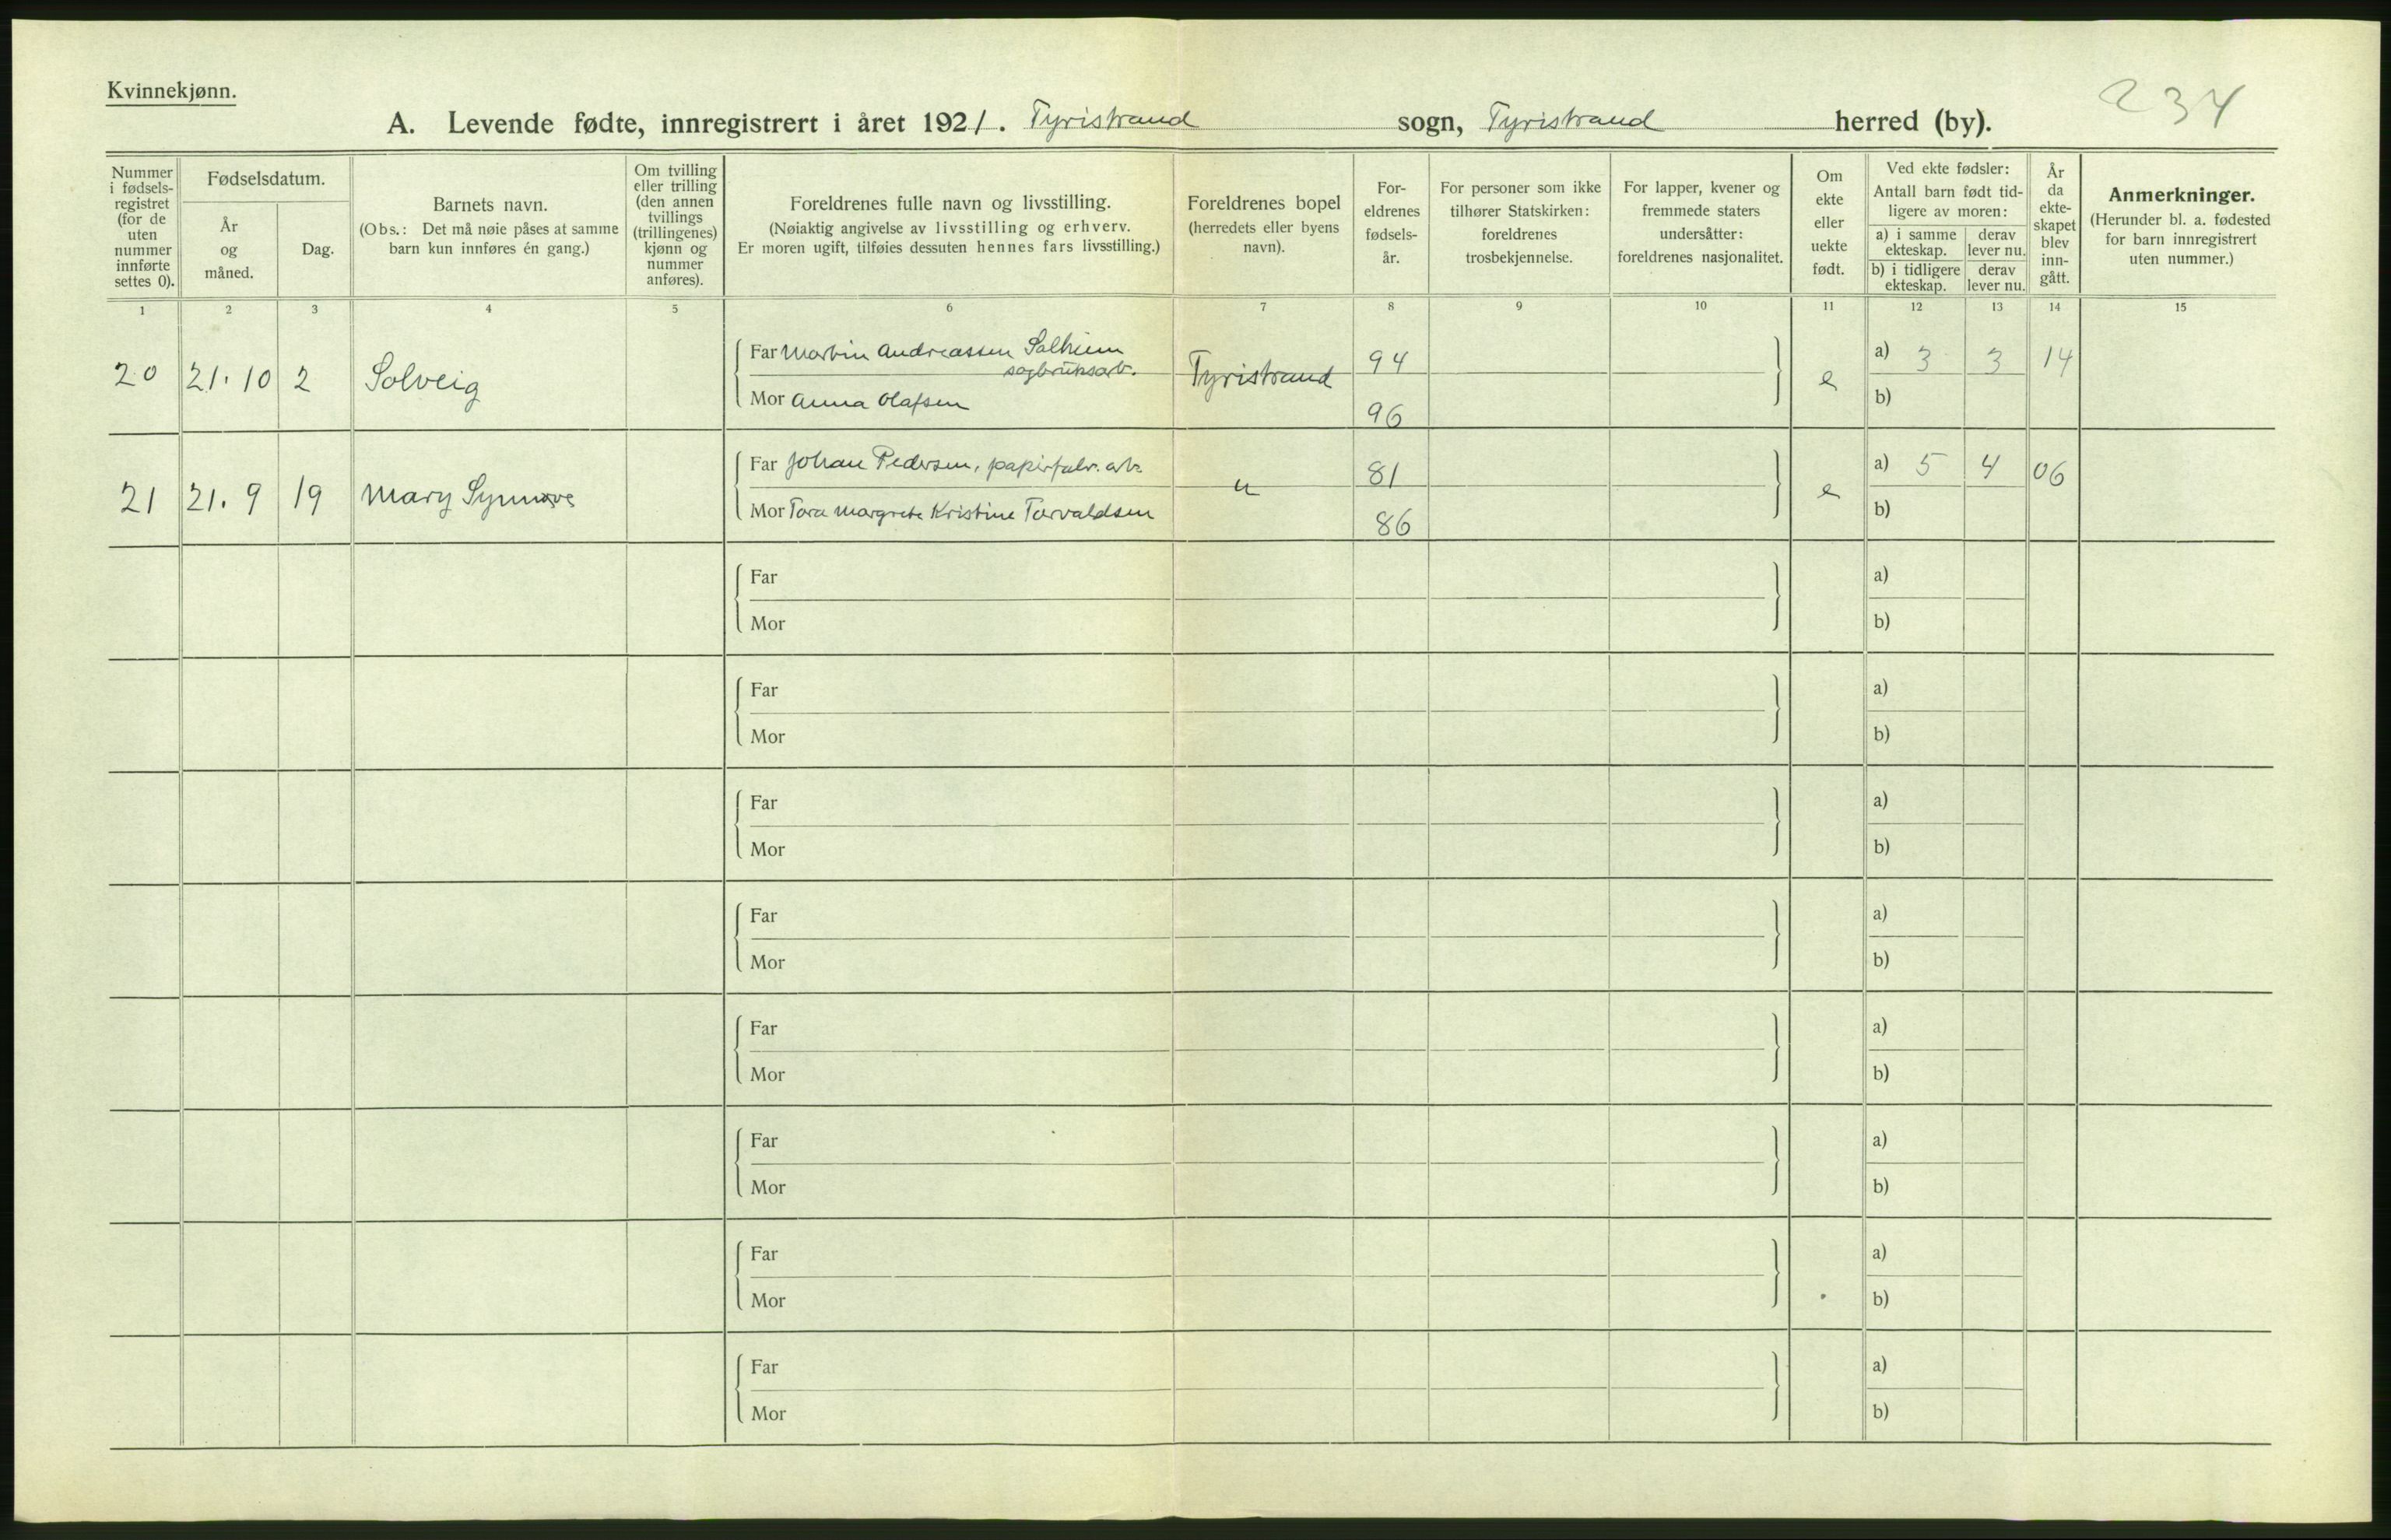 Kvinnekjønn.
234
A. Levende fødte, innregistrert i året 1921. Tyristrand sogn, Tyristrand herred (by).
Nummer i fødsels-registret (for de uten nummer innførte settes 0).
Fødselsdatum.
År og måned.
Dag.
Barnets navn.
(Obs.: Det må nøie påses at samme barn kun innføres én gang.)
Om tvilling eller trilling (den annen tvillings (trillingenes) kjønn og nummer anføres).
Foreldrenes fulle navn og livsstilling.
(Nøiaktig angivelse av livsstilling og erhverv.
Er moren ugift, tilføies dessuten hennes fars livsstilling.)
Foreldrenes bopel
(herredets eller byens navn).
For-eldrenes fødsels-år.
For personer som ikke tilhører Statskirken: foreldrenes trosbekjennelse.
For lapper, kvener og fremmede staters undersåtter: foreldrenes nasjonalitet.
Om ekte eller uekte født.
Ved ekte fødsler:
Antall barn født tid-ligere av moren:
a) i samme ekteskap.
derav lever nu.
b) i tidligere ekteskap.
derav lever nu.
År da ekte-skapet blev inn-gått.
Anmerkninger.
(Herunder bl. a. fødested for barn innregistrert uten nummer.)
1 2 3 4 5 6 7 8 9 10 11 12 13 14 15
20 21. 10 2 Solveig
Far Martin Andreassen Solheim
sagbruksarb.
Mor Anna Olafsen
Tyristrand
94
96
e
a) 3 3 14
b)
21 21. 9 19 Mary Synnøve
Far Johan Pedersen, papirfabr. arb.
Mor Tora Margrete Kristine Torvaldsen
"
81
86
e
a) 5 4 06
b)
Far a)
Mor b)
Far a)
Mor b)
Far a)
Mor b)
Far a)
Mor b)
Far a)
Mor b)
Far a)
Mor b)
Far a)
Mor b)
Far a)
Mor b)